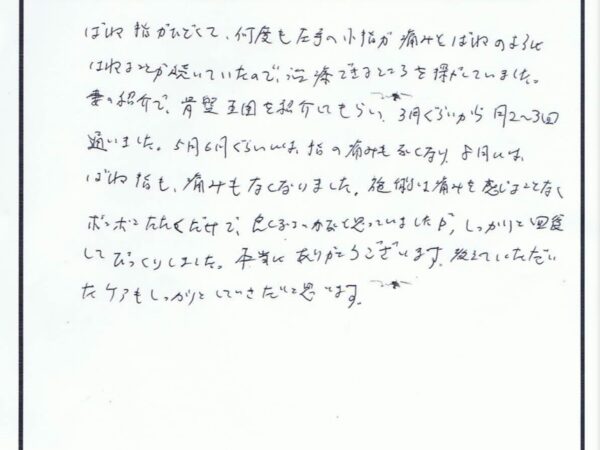 ばね指がひどくて、何度も左手の小指が痛みとばねのように
はねることが続いていたので、治療できるところを探がしていました。
妻の紹介で、骨盤王国を紹介してもらい、3月ぐらいから月2〜3回
通いました。5月6月ぐらいには、指の痛みもなくなり、8月には、
ばね指も、痛みもなくなりました。施術は痛みを感じることなく
ポンポンたたくだけで、と思っていましたが、しっかりと回復
してびっくりしました。本当にありがとうございます。教えていただい
たケアもしっかりとしていきたいと思います。